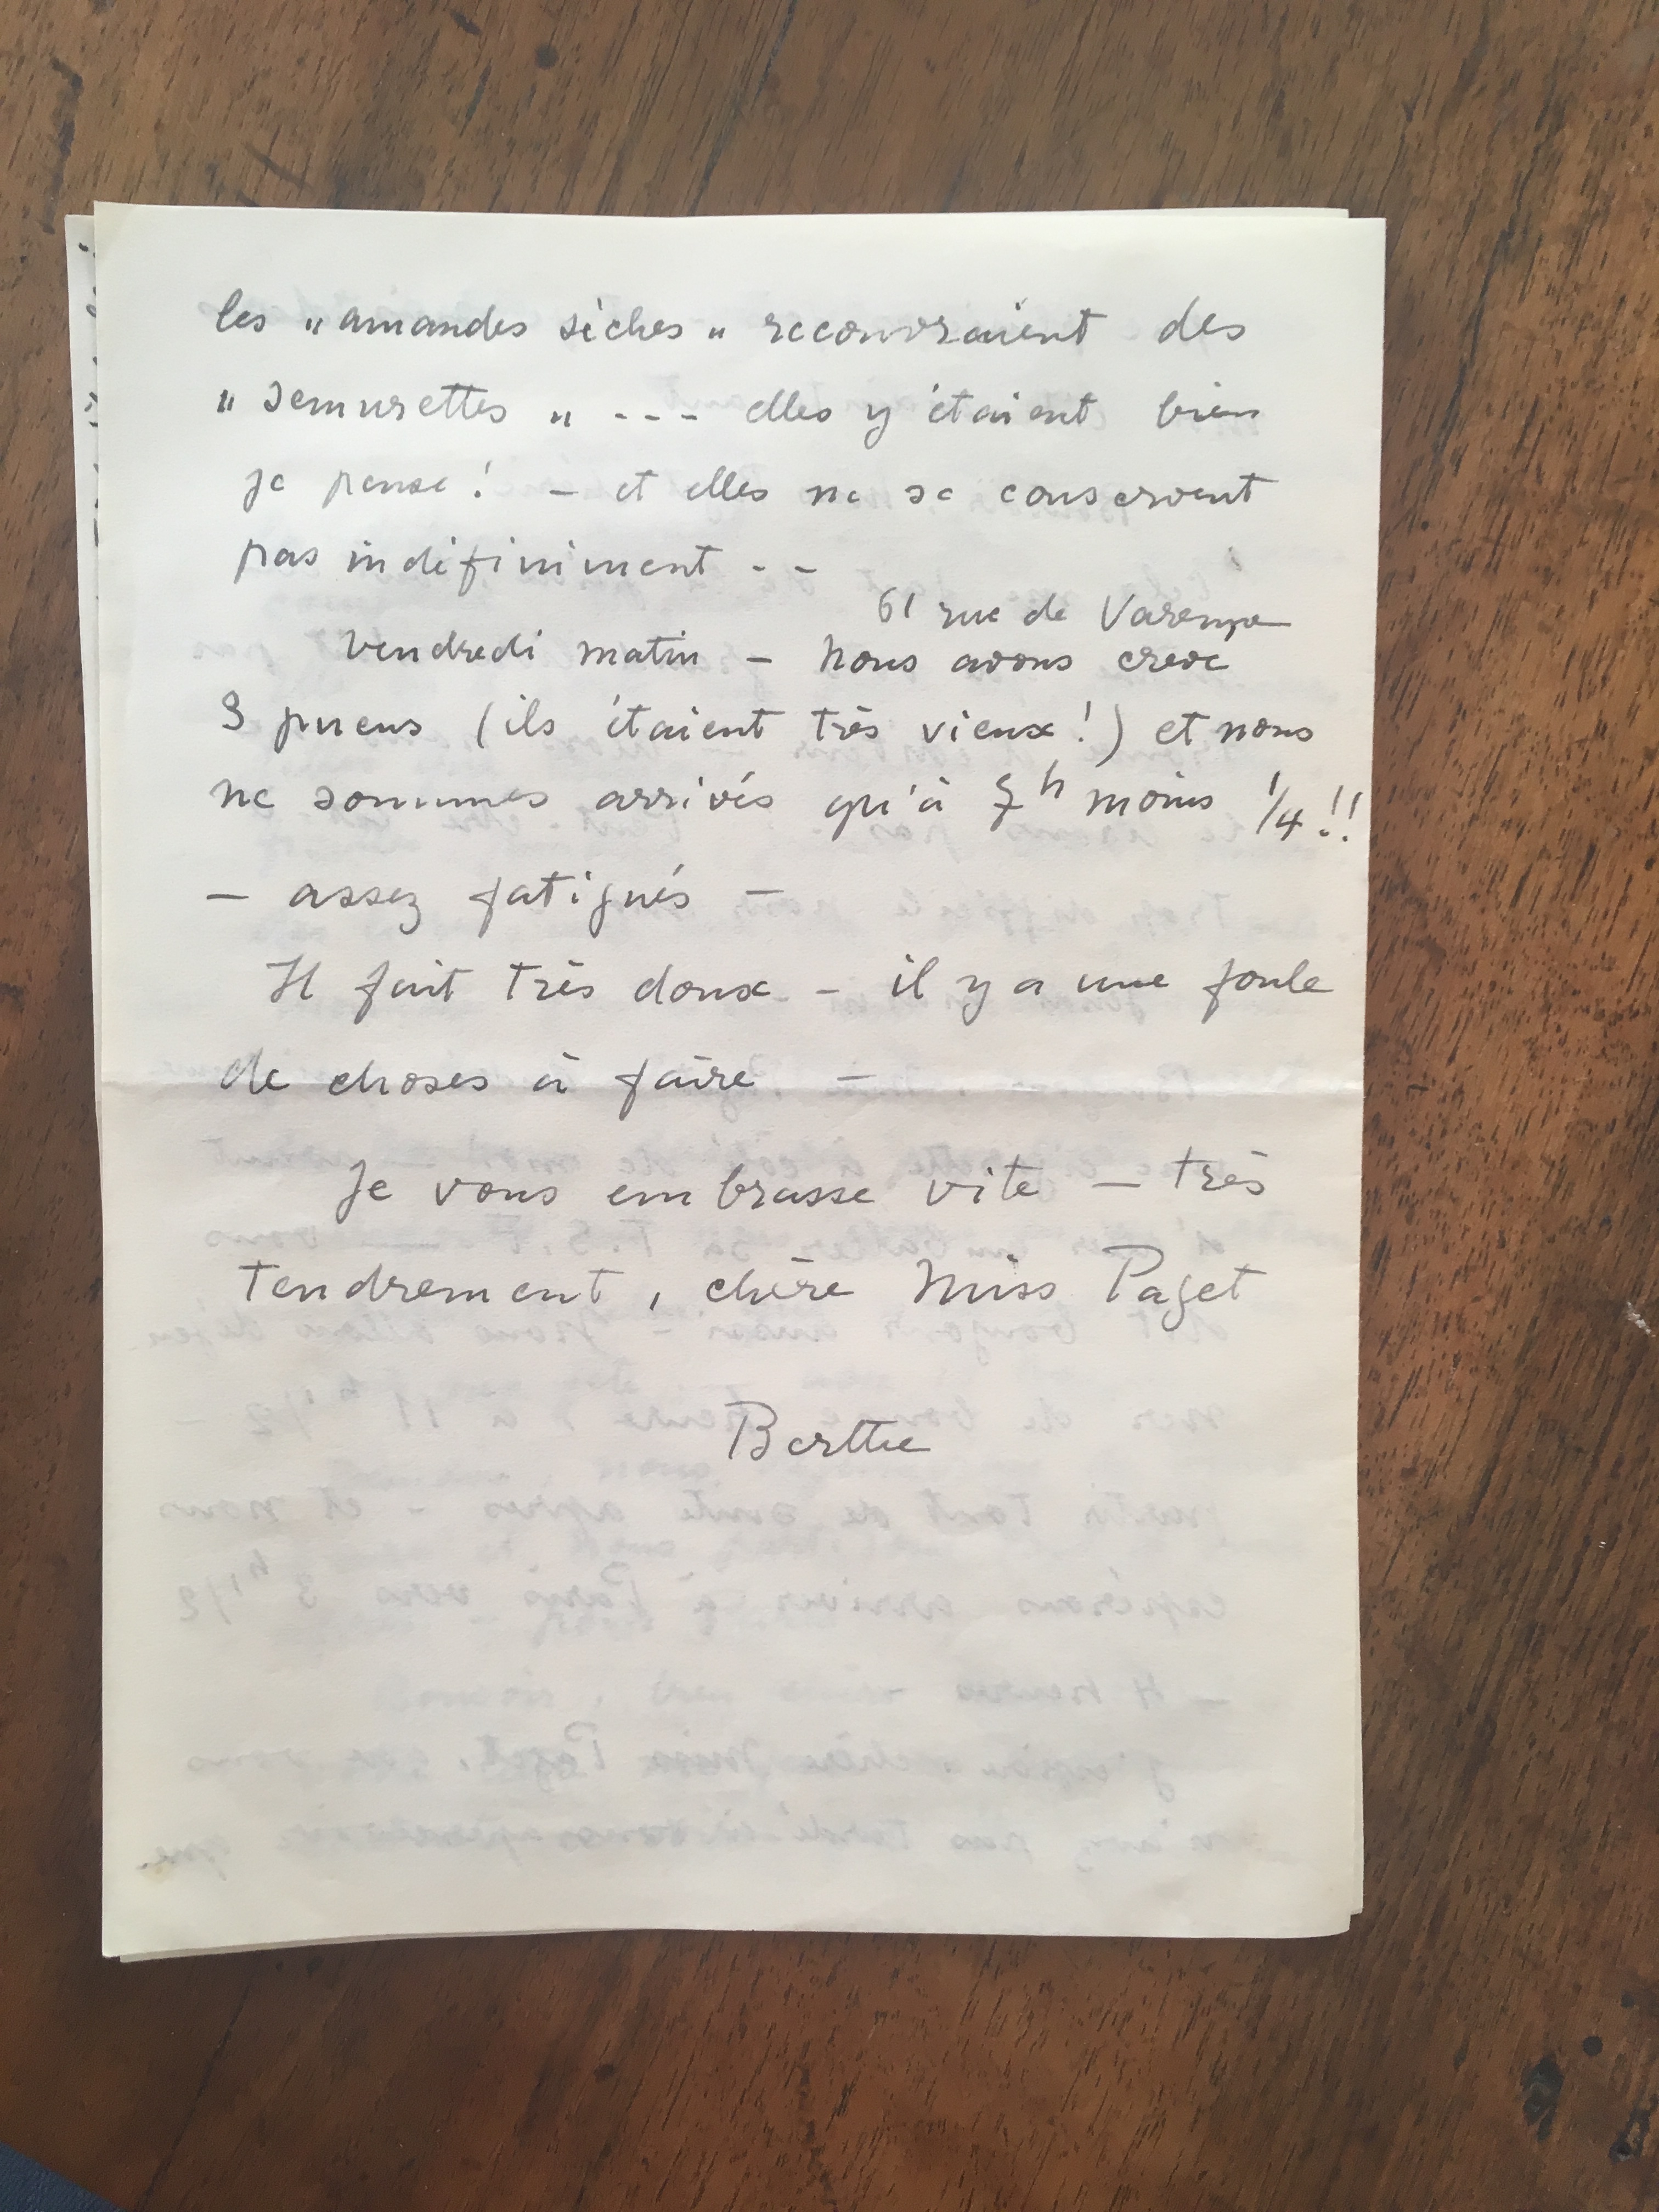 les "amandes sèches" recouvraient des
"Semurettes" --- elles y étaient bien
je pense! – et elles ne se conservent
pas indéfiniment - -
61 rue de Varenne
Vendredi matin – Nous avons crevé
3 pneus (ils étaient très vieux!) et nous
ne sommes arrivés qu'à h moins 1/4!!
– assez fatigués –
Il fait très doux – il y a une foule
de choses à faire –
Je vous embrasse vite – très
tendrement, chère Miss Paget
Berthe